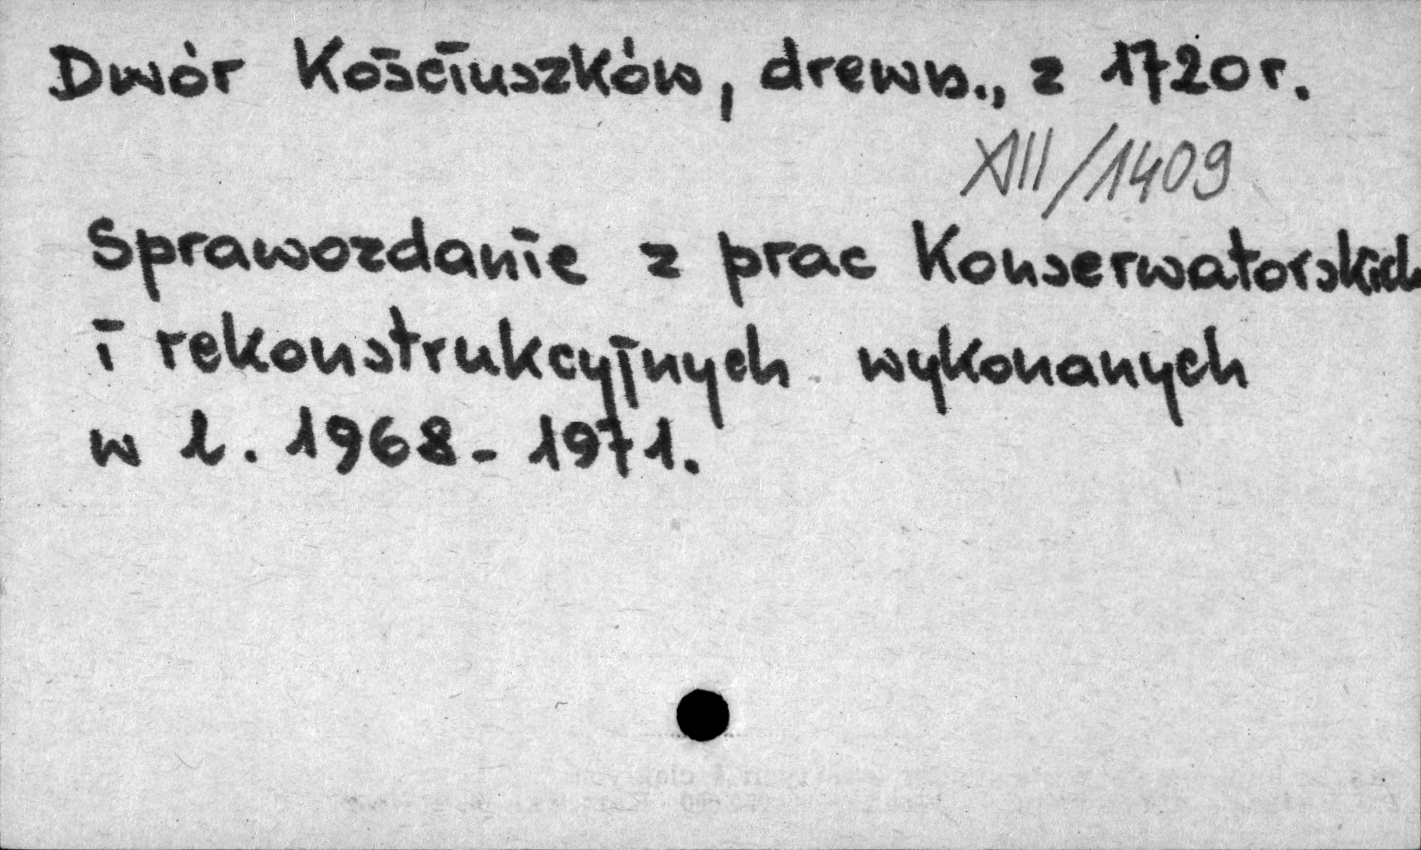 Dwór Kościuszków, drewn., z 1720 r.
XIII/1409
Sprawozdanie z prac Konserwatorskich
i rekonstrukcyjnych wykonanych
w l. 1968-1971.